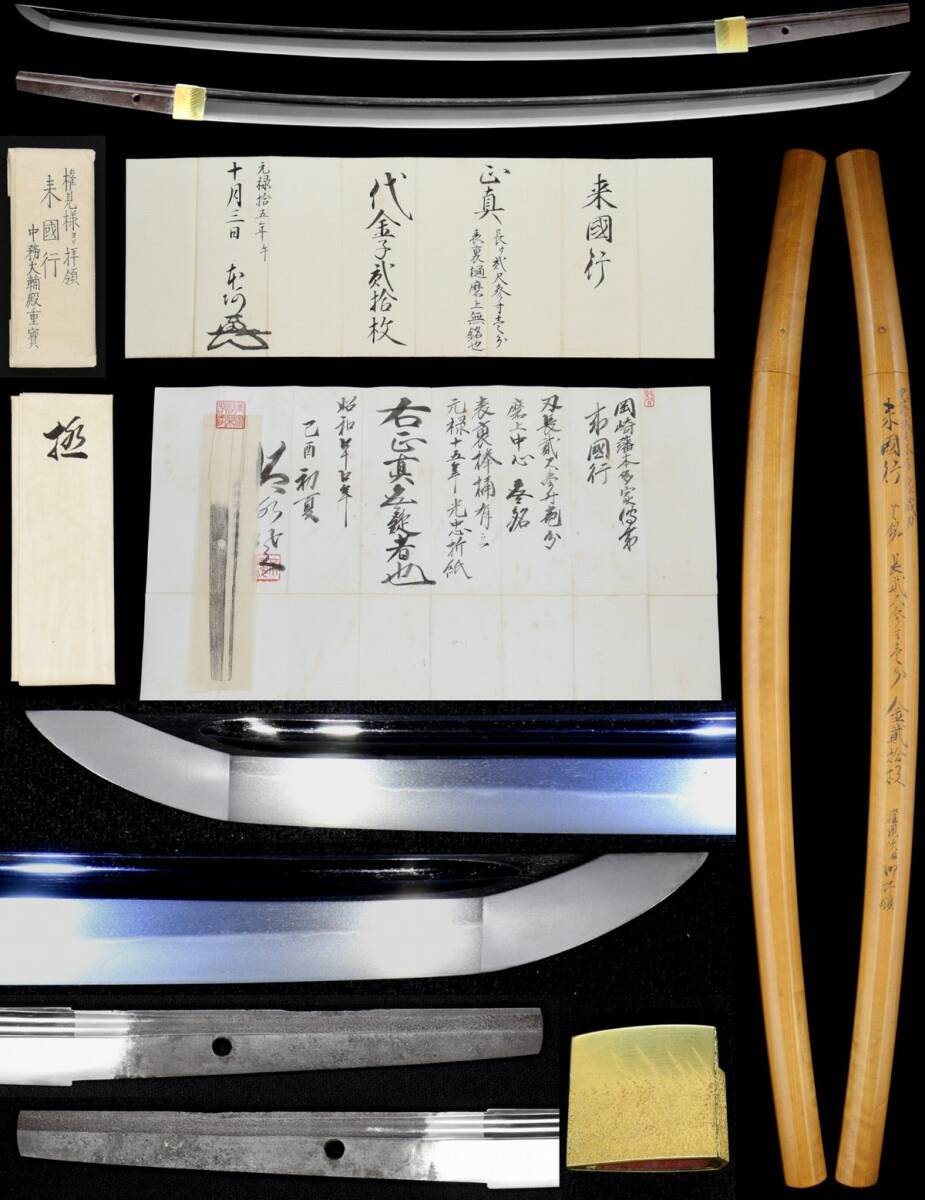 権見様ヨリ拝領
来國行
中務大輔殿重寳
来國行
正真 長サ貳尺参寸壱分
表裏樋磨上無銘也
代金子貳拾枚
元禄拾五年午
十月三日
極
岡崎藩本多家傳来
来國行
刃長貳尺参寸壱分
磨上中心 無銘
表裏棒樋有之
元禄十五年光忠折紙
右正真無疑者也
昭和四十四年
乙酉初夏
来國行
無銘 長貳尺参寸壱分 金貳拾枚